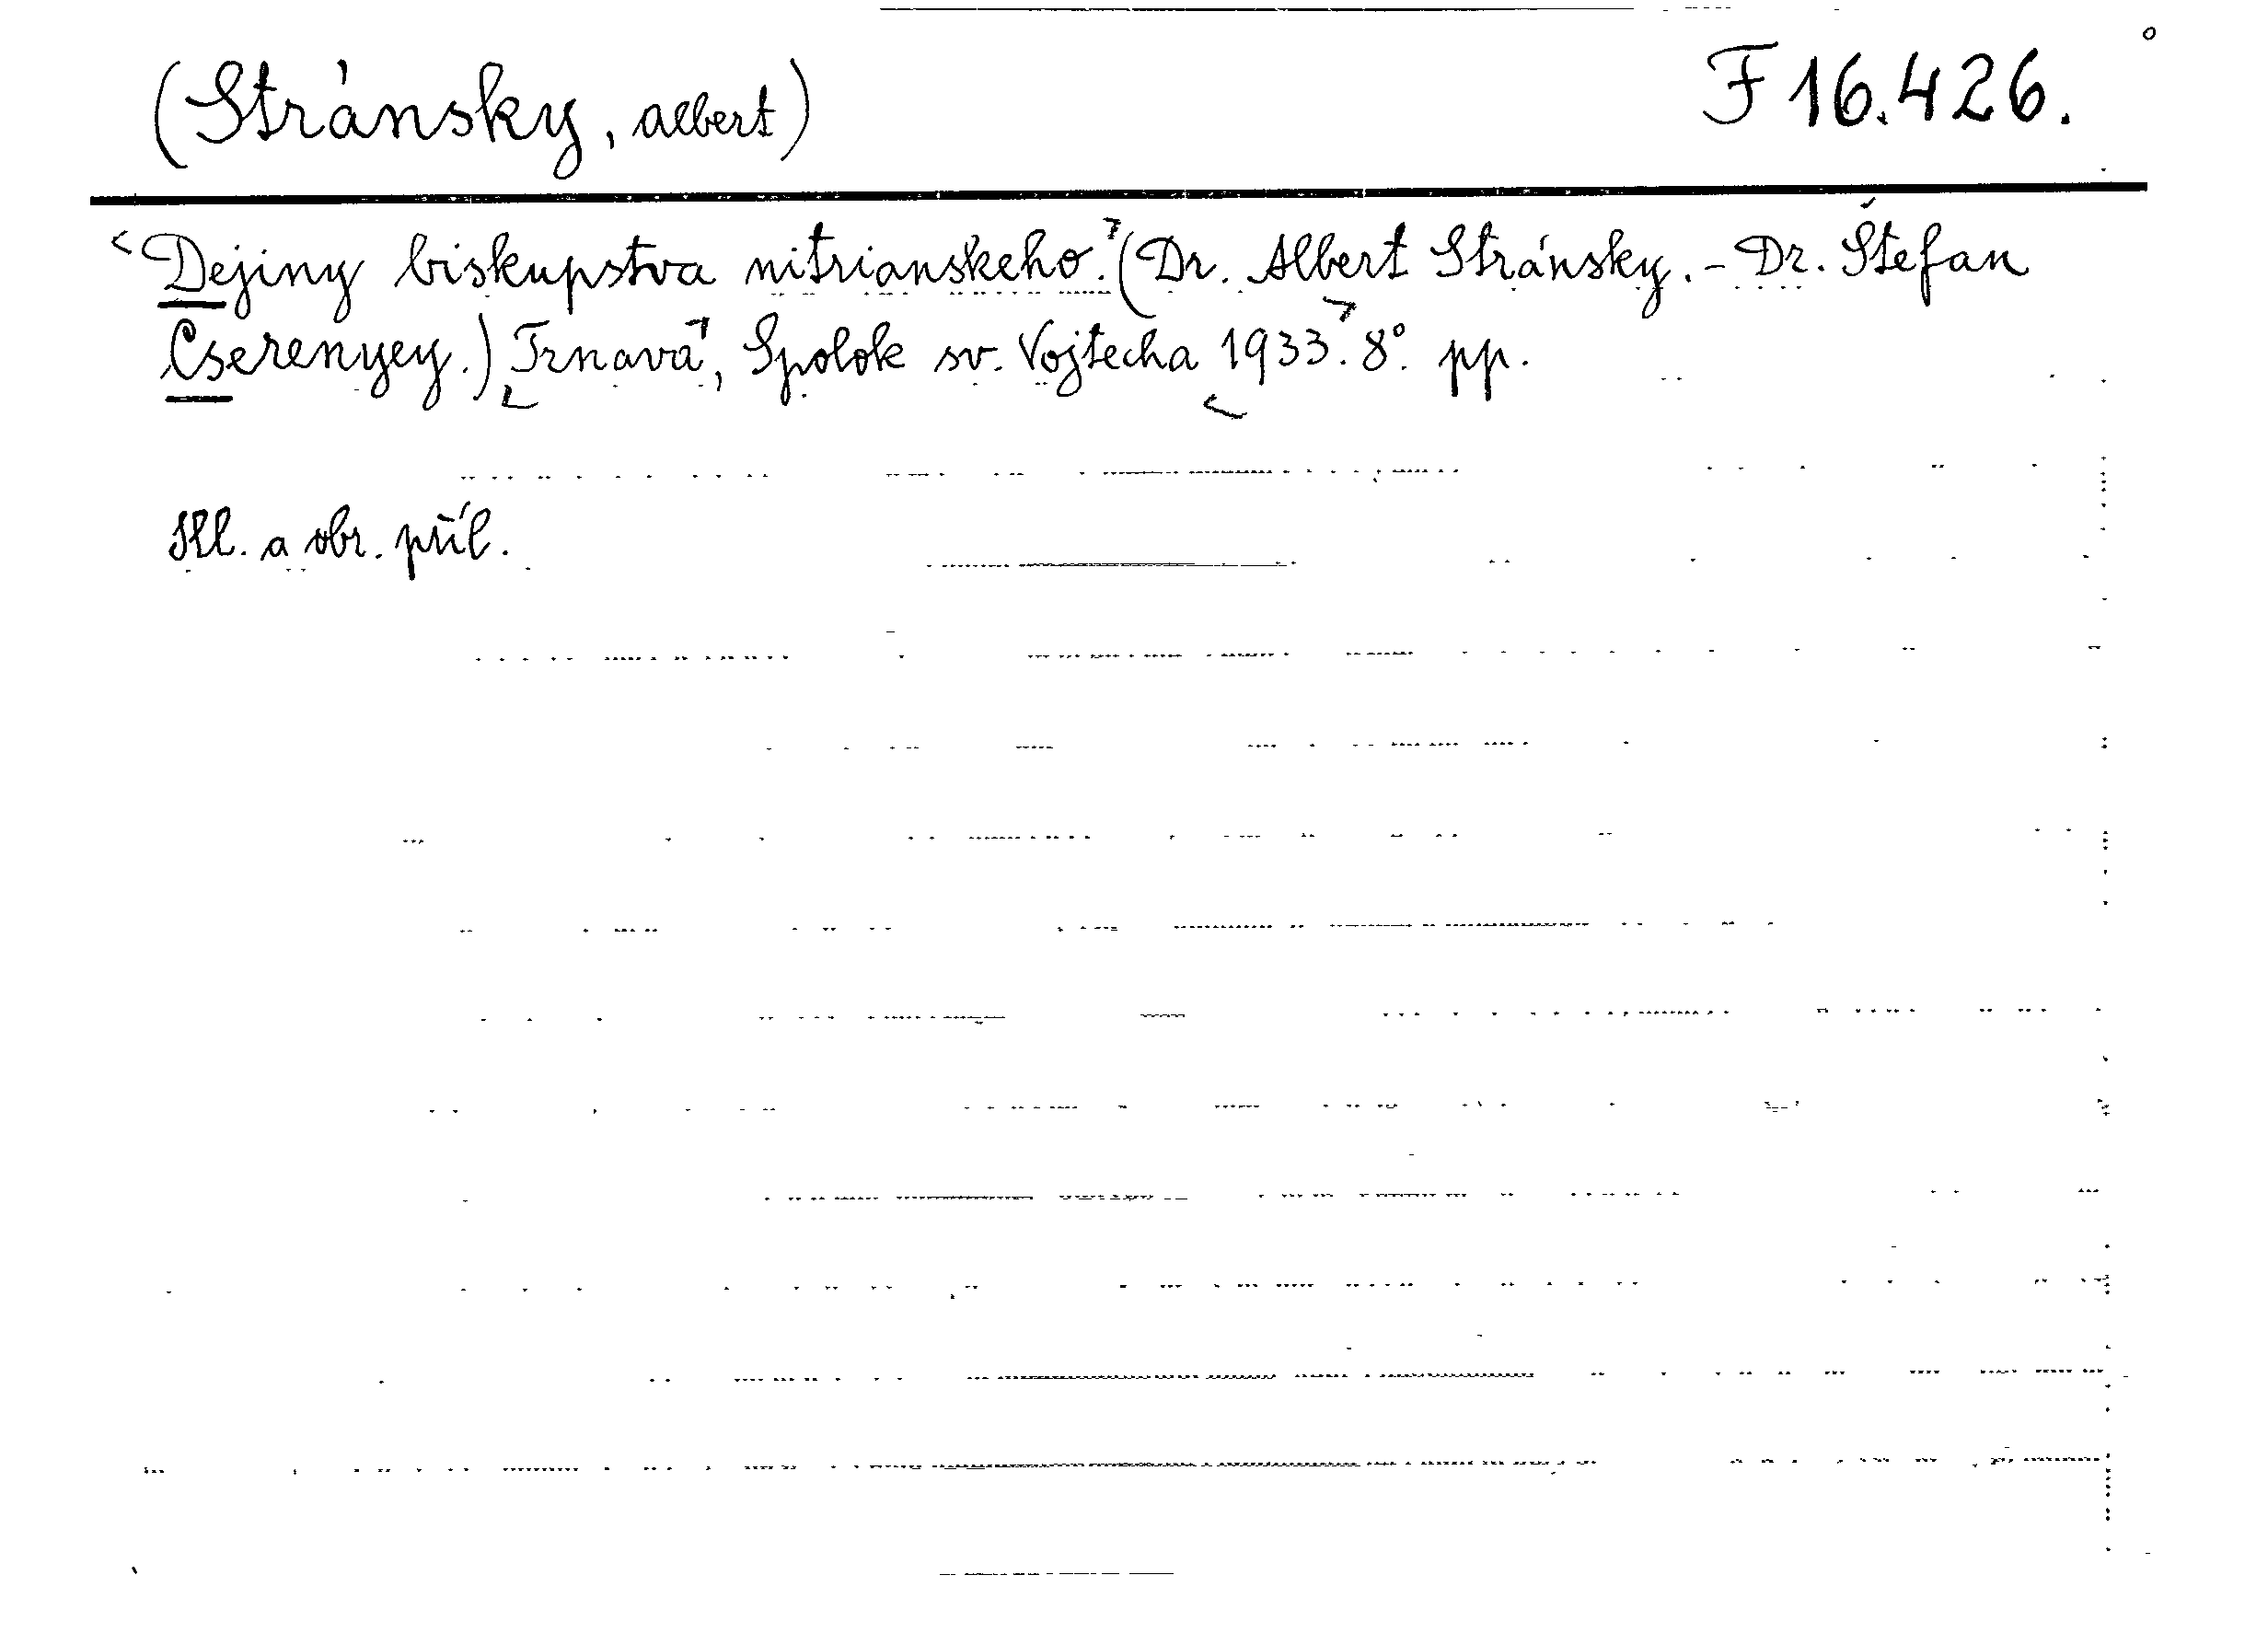 (Stránsky, Albert) F 16.426.
Dejiny biskupstva nitrianskeho. (Dr. Albert Stránsky. - Dr. Štefan
Cserenyey.) Trnava, Spolok sv. Vojtecha 1933. 8°. pp.
Ill. a obr. příl.